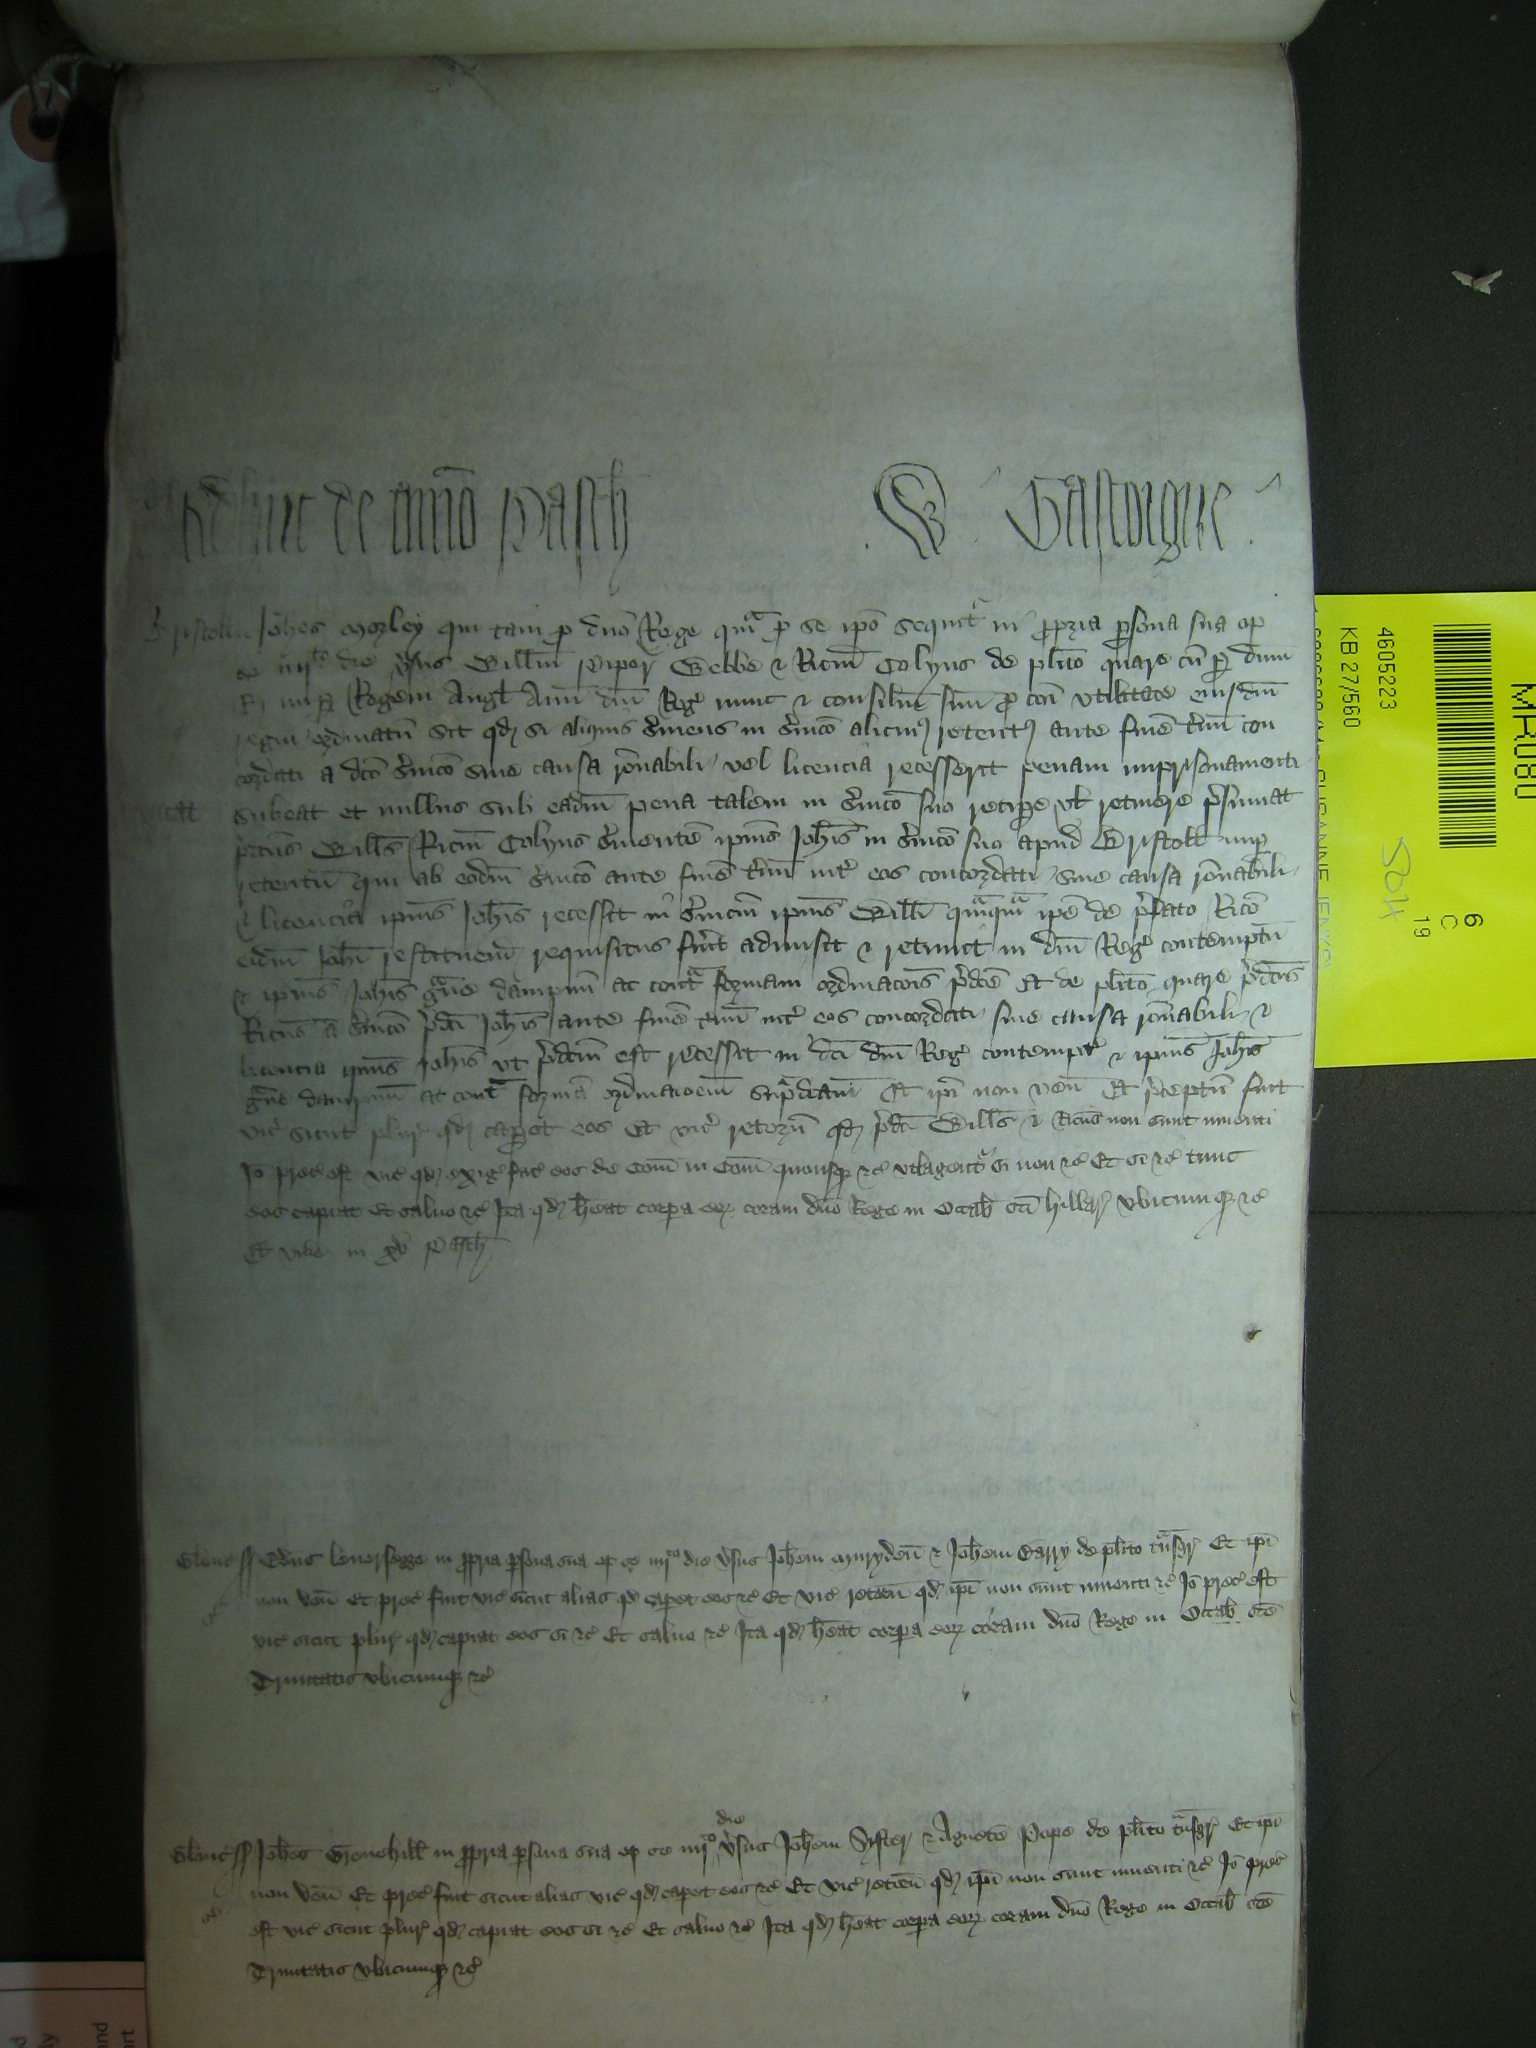 Adhuc de Termino Pasch
. W . Gascoigne .
Bristoll Johes Morley qui tam p dno Rege qm p se ipo sequit in ppria psona sua op
se iiijto die vsus Willm Piper Webbe & Ricm Colyns de plito quare cu p dnm
E nup Regem Angl Aui dni Reg nunc & consiliu suu p coi vtilitate eiusdm
regni ordinatu sit qd si aliquis suiens in suico alicui retentus ante fine tmi con
cordati a dco suico sine causa ronabili vel licencia recesserit penam imprisonamenti
subeat et nullus sub eadm pena talem in suico suo recipe vl retinere psumat
pdcus Wills Ricm Colyns suiente ipius Johis in suico suo apud Bristoll nup
retentu qui ab eodm suico ante fine tmi int eos concordati sine causa ronabili
& licencia ipius Johis recessit in suiciu ipius Willi quamqua ipe de pfato Rico
eidm Johi restituend requisitus fuit admisit & retinuit in dni Reg contemptu
et ipius Johis gue dampnu ac cont formam ordinacois pdce Et de plito quare pdcus
Ricus a suico pdci Johis ante fine tmi int eos concordati sine causa ronabili &
licencia ipius Johis vt pdcm est recessit in dci dni Reg contempt & ipius Johis
gue dampnu ac cont forma ordinacoem supdcam Et ipi non ven Et pceptu fuit
vic sicut plur qd capet eos Et vic retorn qd pdci Wills & Ricus non sunt inuenti
Jo prec est vic qd exig fac eos de Com in Com quousq &c vtlagent si non &c Et si &c tunc
eos capiat Et saluo &c Ita qd heat corpa eor coram dno Rege in Octab sci Hillar vbicumq &c
Et vlt in xv Pasch
Glouc ss Edus Leuersegge in ppria psona sua op se iiijto die vsus Johem Muryden & Johem Garry de plito tnsgr Et ipi
non ven Et prec fuit vic sicut alias qd capet eos &c Et vic retorn qd ipi non sunt inuenti &c Jo prec est
vic sicut plur qd capiat eos si &c Et saluo &c Ita qd heat corpa eor coram dno Rege in Octab sce
Trinitatis vbicumq &c
die
Glouc ss Johes Grenehill in ppria psona sua op se iiijto vsus Johem Syster & Agnete Pope de plito tnsgr Et ipi
non ven Et prec fuit sicut alias vic qd capet eos &c Et vic retorn qd ipi non sunt inuenti &c Jo prec
est vic sicut plur qd capiat eos si &c Et saluo &c Ita qd heat corpa eor coram dno Rege in Octab sce
Trinitatis vbicumq &c
4605223
KB 27/560
6
C
19